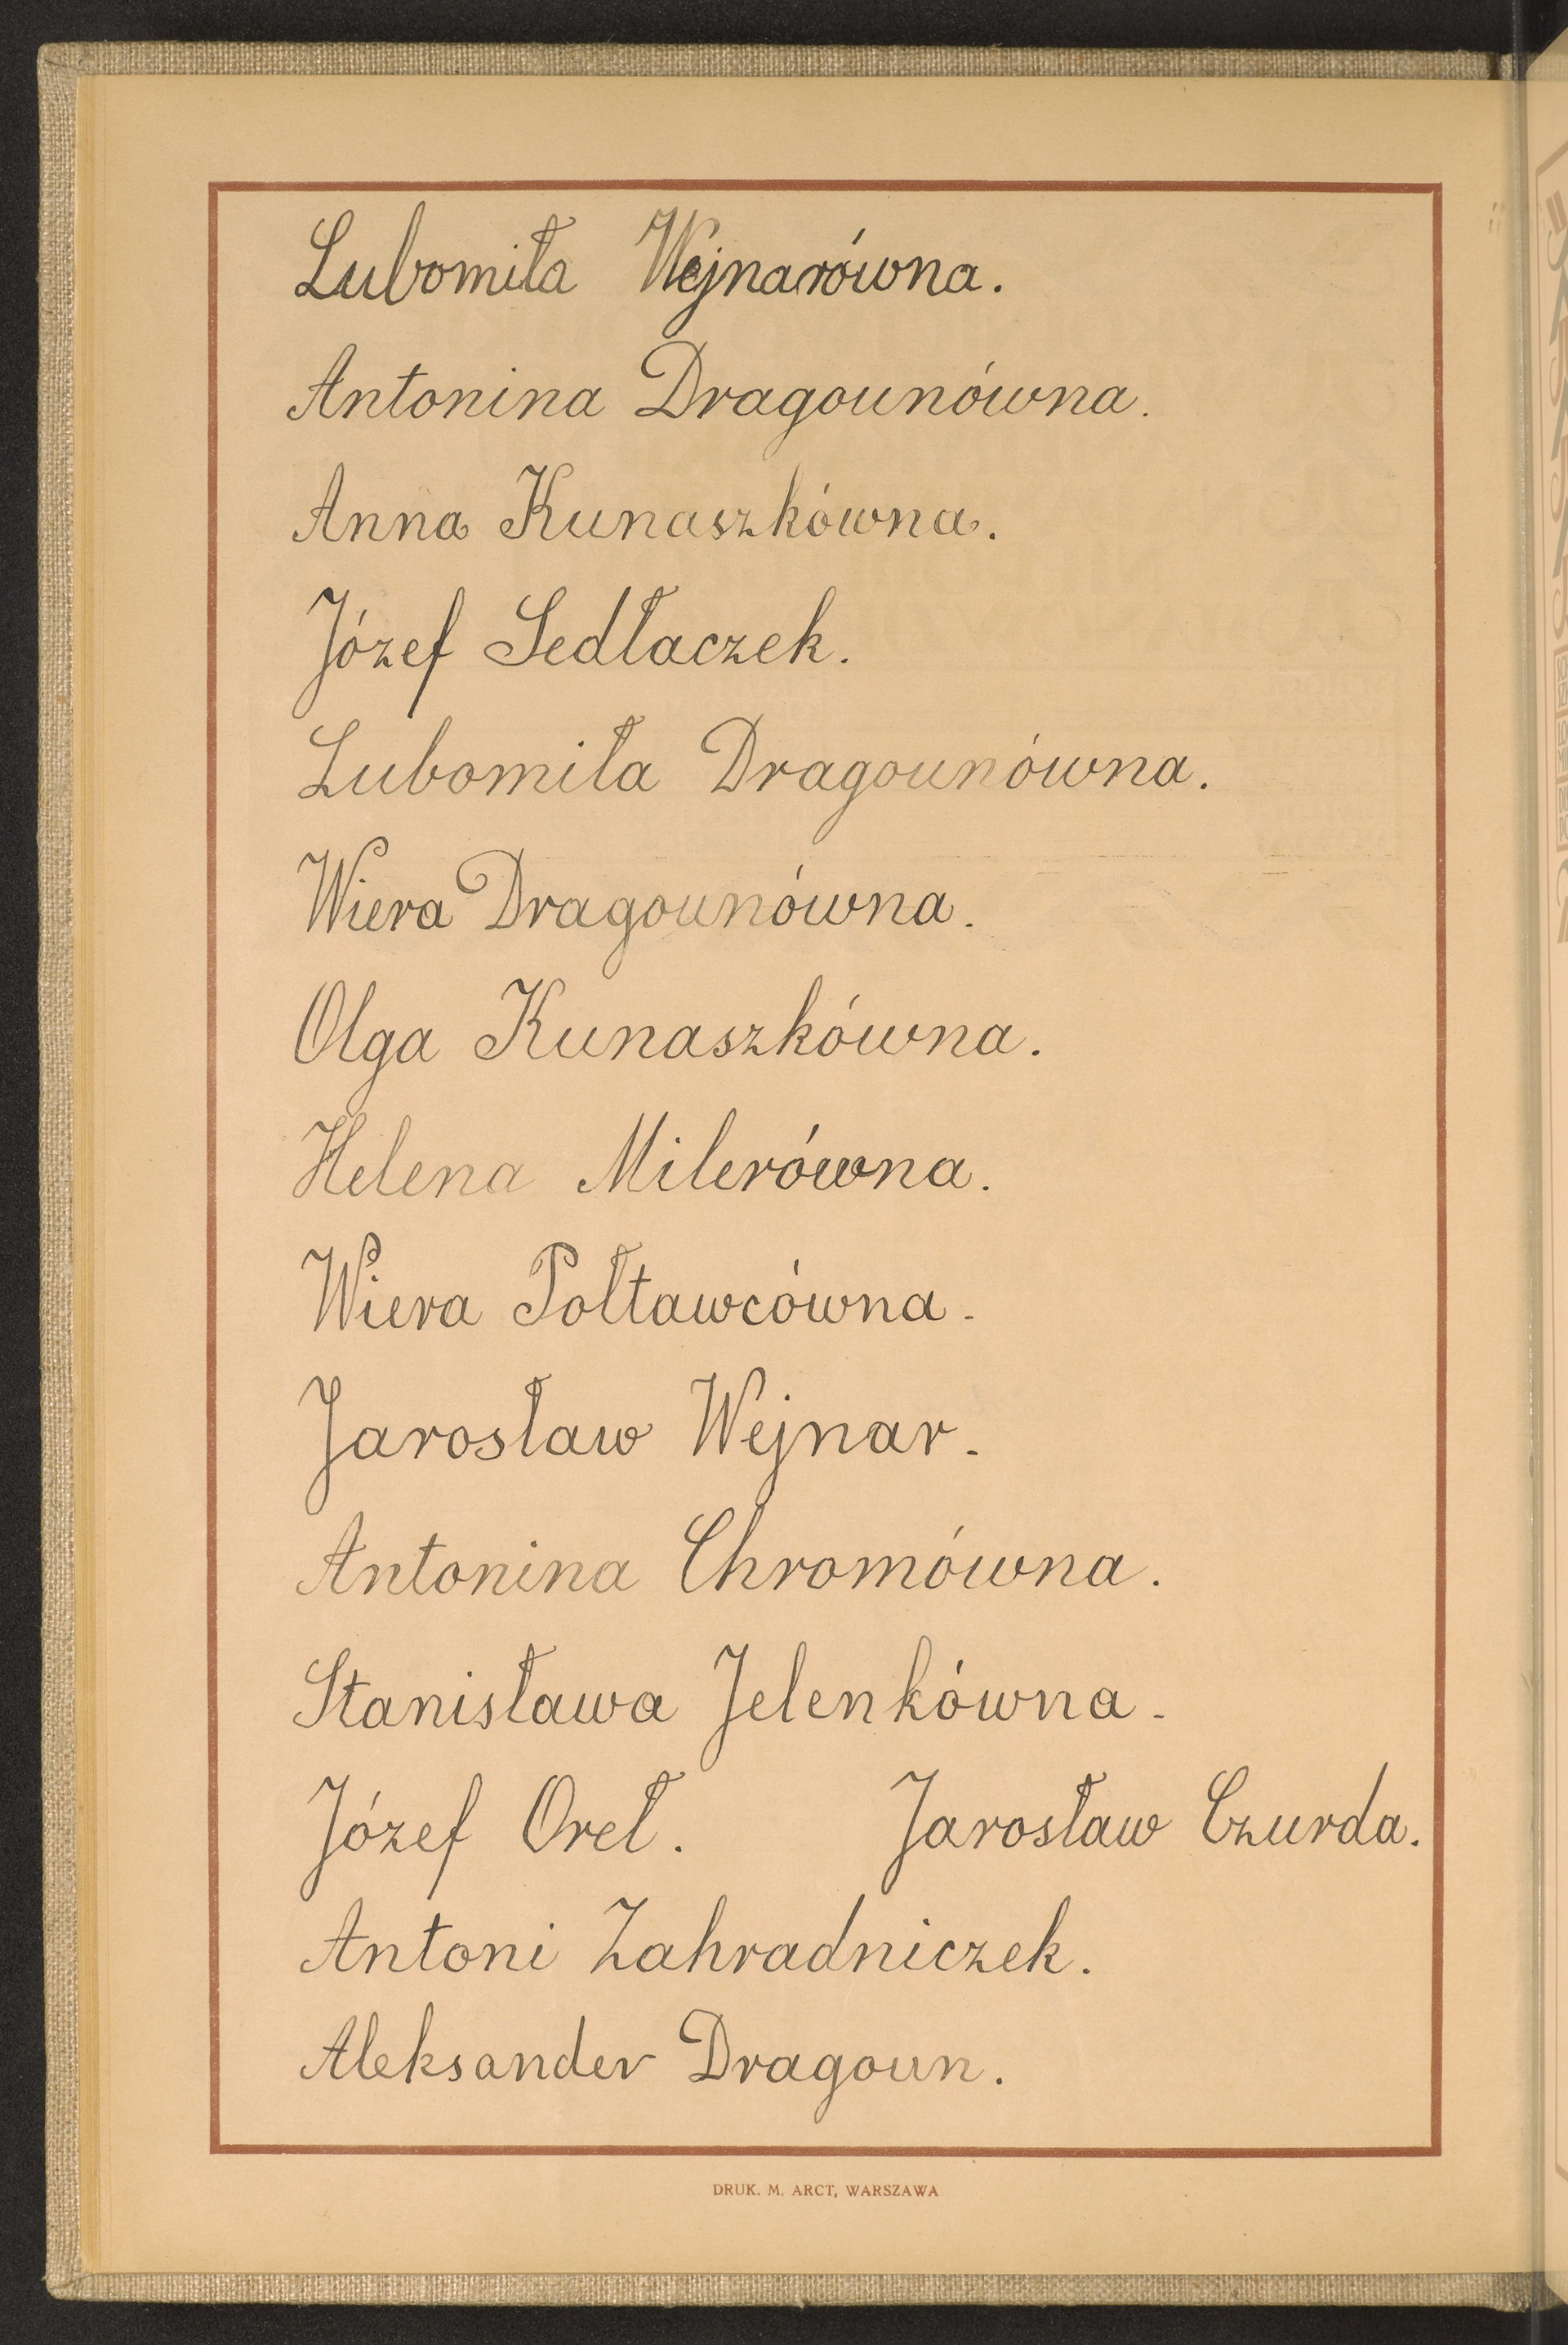 Lubomiła Wejnarówna.
Antonina Dragounówna.
Anna Kunaszkówna.
Józef Sedłaczek.
Lubomiła Dragounówna.
Wiera Dragounówna.
Olga Kunaszkówna.
Helena Milerówna.
Wiera Połtawcówna.
Jarosław Wejnar.
Antonina Chromówna.
Stanisława Jelenkówna.
Józef Oreł. Jarosław Czurda.
Antoni Zahradniczek.
Aleksander Dragoun.
DRUK. M. ARCT, WARSZAWA